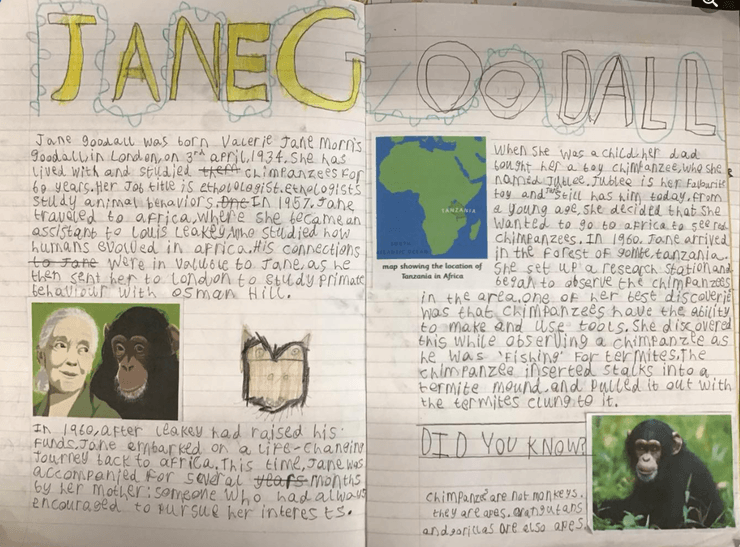 JANE GOODALL
Jane goodall was born Valerie Jane Morris
goodall in London, on 3rd april, 1934. She has
lived with and studied chimpanzees for
60 years. Her Job title is ethologist. ethologists
study animal behaviors. In 1957. Jane
traveled to africa, where she became an
assistant to Louis Leakey, who studied how
humans evolved in africa. His connections
to Jane were in to Jane, as he
then sent her to London to study primate
behaviour with osman Hill.
In 1960, after Leakey had raised his
funds, Jane embarked on a life-changing
Journey back to africa. This time, Jane was
accompanied for several years months
by her mother: someone who had always
encouraged to pursue her interests.
When she was a child her dad
bought her a toy chimpanzee, who she
named Jubilee. Jubilee is her favourite
toy and still has him today. from
a young age, she decided that she
wanted to go to africa to see
chimpanzees. In 1960. Jane arrived
in the forest of gombe, tanzania.
She set up a research station and
began to observe the chimpanzees
in the area. one of her best
was that chimpanzees have the ability
to make and use tools. She discovered
this while observing a chimpanzee as
he was 'fishing' for termites. The
chimpanzee inserted stalks into a
termite mound, and pulled it out with
the termites clung to it.
TANZANIA
map showing the location of
Tanzania in Africa
DID YOU KNOW?
chimpanzee are not monkeys.
they are apes. orangutans
and gorillas are also apes.